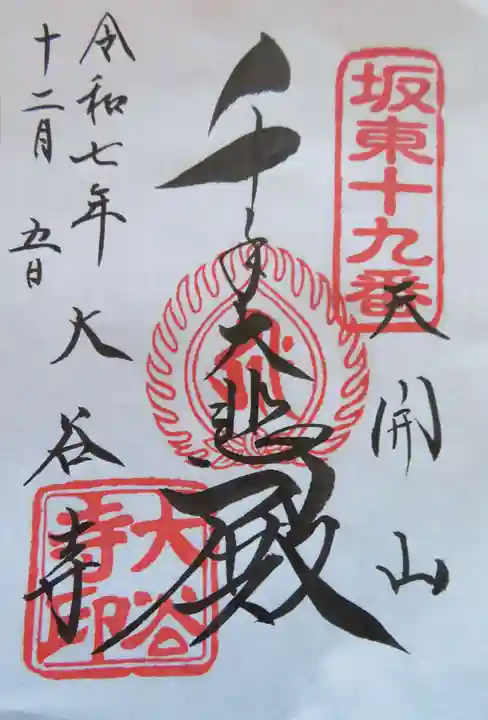 坂東十九番
天開山
千手大悲殿
大谷寺
令和七年
十二月五日
大谷寺印